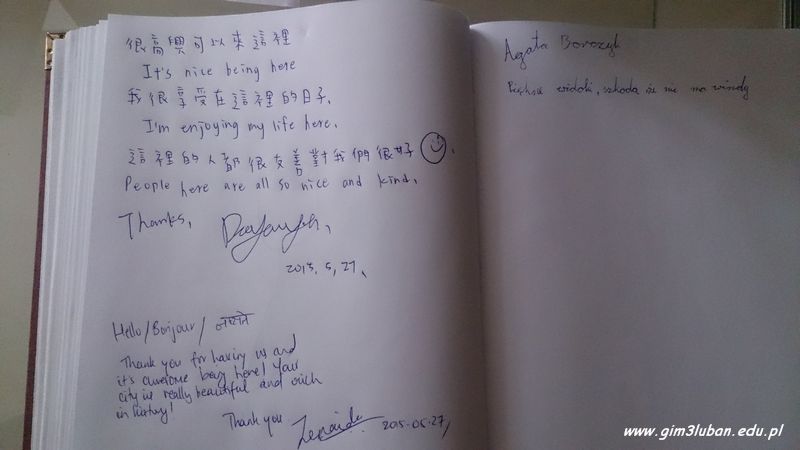 很高興可以來這裡
It's nice being here
我很享受在這裡的日子.
I'm enjoying my life here.
這裡的人都很友善對我們很好
People here are all so nice and kind.
Thanks,
2015. 5, 27.
Hello/Bonjour/नमस्ते
Thank you for having us and
it's awesome being here! Your
city is really beautiful and rich
in history!
Thank you
2015-05-27,
Agata Borczyk
Piękne widoki, szkoda że nie ma windy
www.gim3luban.edu.pl